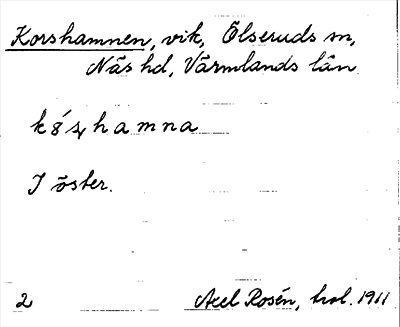 Korshamnen, vik, Ölseruds sn,
Näs hd, Värmlands län
hamna
I öster.
2 Axel Rosén, hol. 1911